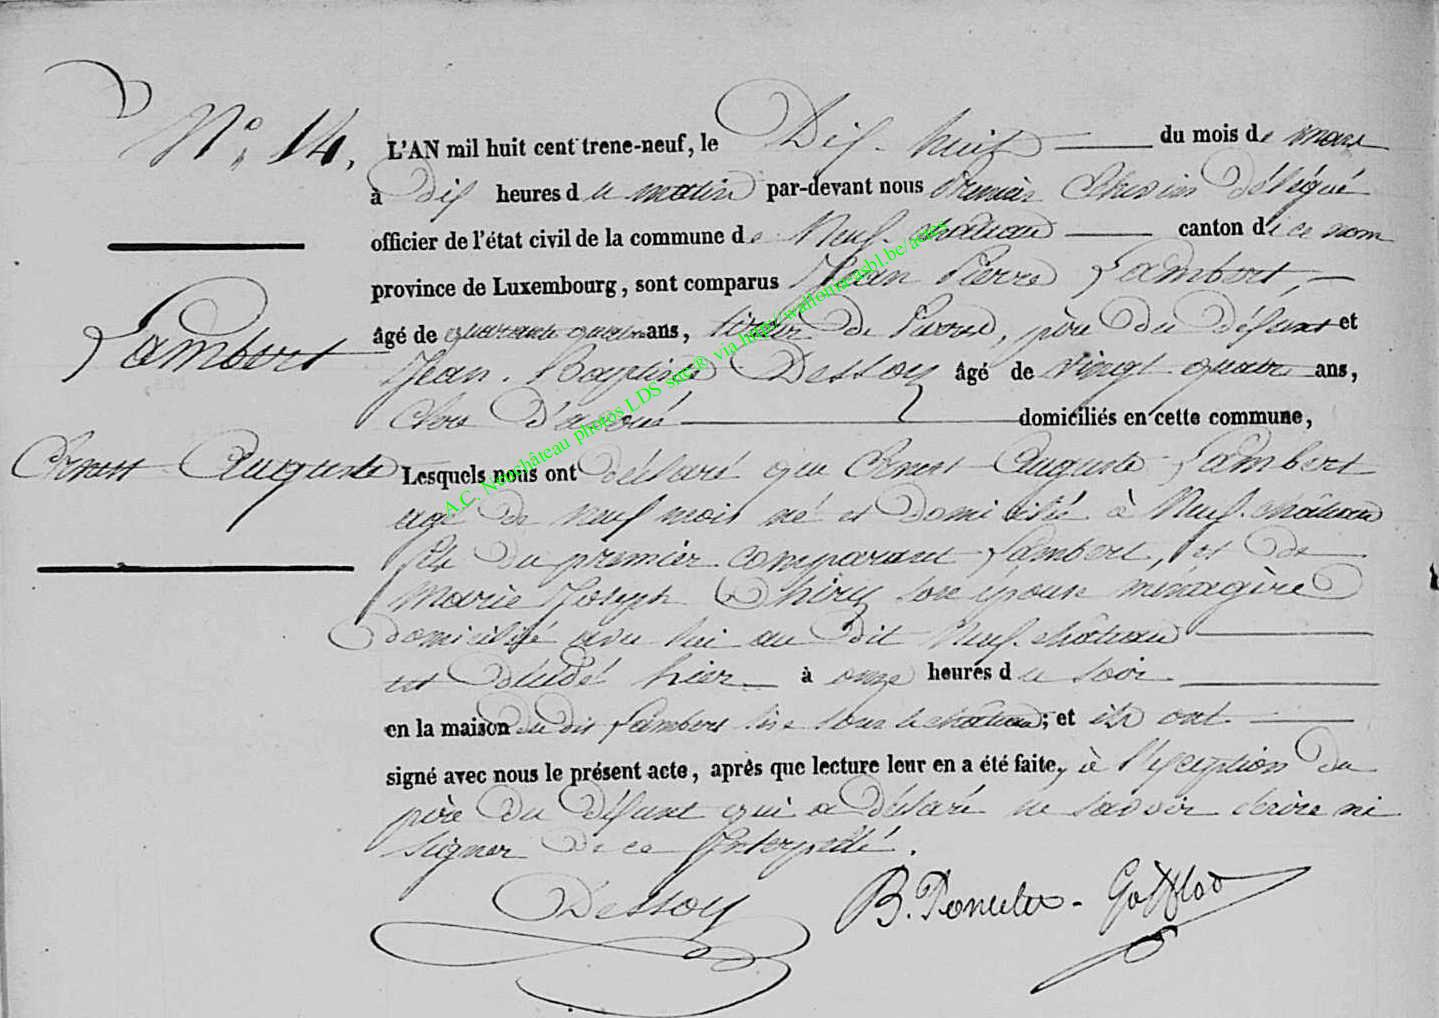 N.° 14.
L'AN mil huit cent trene-neuf, le Dix-huit du mois de mars
à dix heures du matin par-devant nous Premier Echevin délégué
officier de l'état civil de la commune de Neuf-château canton de ce nom
province de Luxembourg, sont comparus Jean Pierre Lambert,
âgé de quarante quatre ans, tireur de Pierre, père du défunt et
Lambert
Jean-Baptiste Dessoy âgé de vingt quatre ans,
Clerc d'avoué domiciliés en cette commune,
Ernest Auguste
Lesquels nous ont déclaré que Ernest Auguste Lambert
agé de neuf mois né et domicilié à Neuf-château
fils du premier comparant Lambert, et de
Marie Joseph Thiry son épouse ménagère
domicilié avec lui au dit Neuf-château
est décédé hier à onze heures du soir
en la maison du dit Lambert sise sous le château; et ils ont
signé avec nous le présent acte, après que lecture leur en a été faite, à l'exception du
père du défunt qui a déclaré ne savoir écrire ni
signer de ce Interpellé.
Dessoy B. Poncelet-Gofflot
A.C. Neufchâteau photos LDS sur® via http://wallonica asbl.be/actes